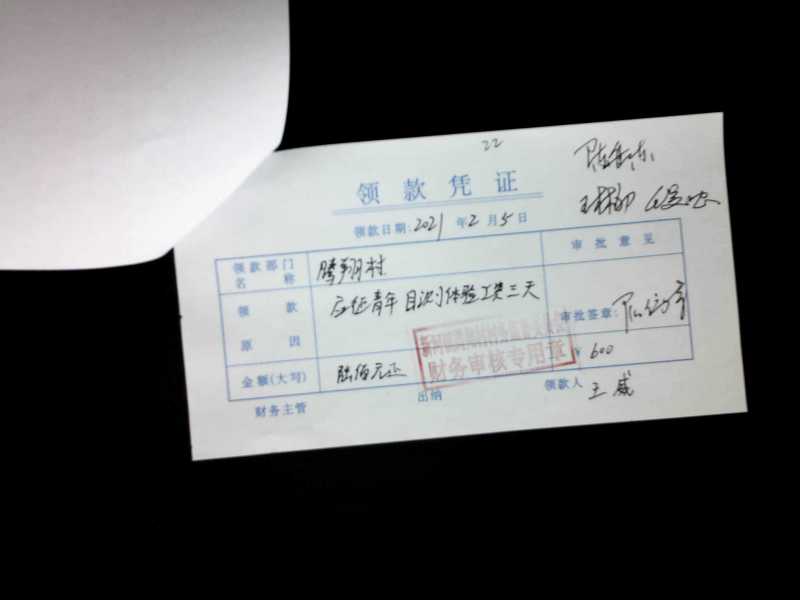 22
领款凭证
领款日期:2021年2月5日
领款部门名称 腾翔村
审批意见
领款原因 应征青年目测体验工资三天
审批签章:
财务审核专用章
金额(大写) 陆佰元正 ¥600
财务主管 出纳 领款人 王威